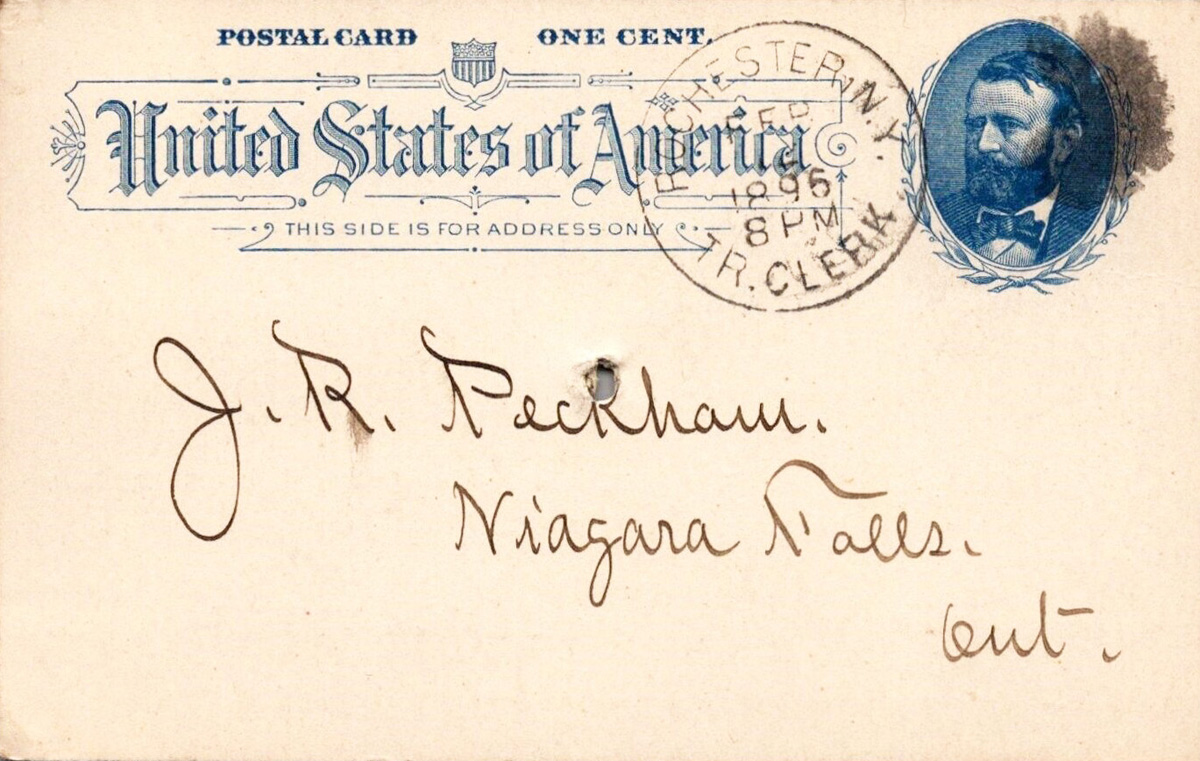 POSTAL CARD ONE CENT.
United States of America
THIS SIDE IS FOR ADDRESS ONLY
ROCHESTER, N.Y.
FEB
1896
8 PM
TR. CLERK
J. R. Peckham.
Niagara Falls.
Ont.